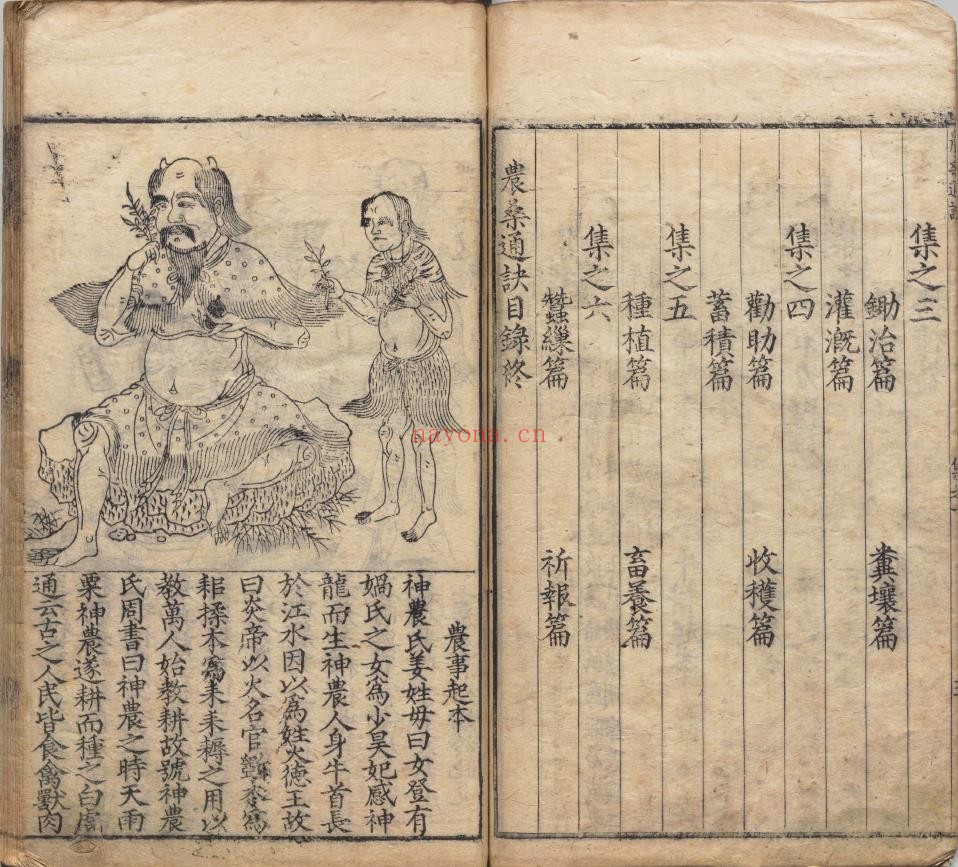 集之三
鋤治篇 糞壤篇
灌溉篇
集之四
勸助篇 收穫篇
蓄積篇
集之五
種植篇 畜養篇
集之六
蠶繅篇 祈報篇
農桑通訣目錄終
農事起本
神農氏姜姓母曰女登有
媧氏之女為少昊妃感神
龍而生神農人身牛首長
於江水因以為姓火德王故
曰炎帝以火名官斵木為
耜揉木為耒耒耨之用以
教萬人始教耕故號神農
氏周書曰神農之時天雨
粟神農遂耕而種之白虎
通云古之人民皆食禽獸肉
nayona.cn